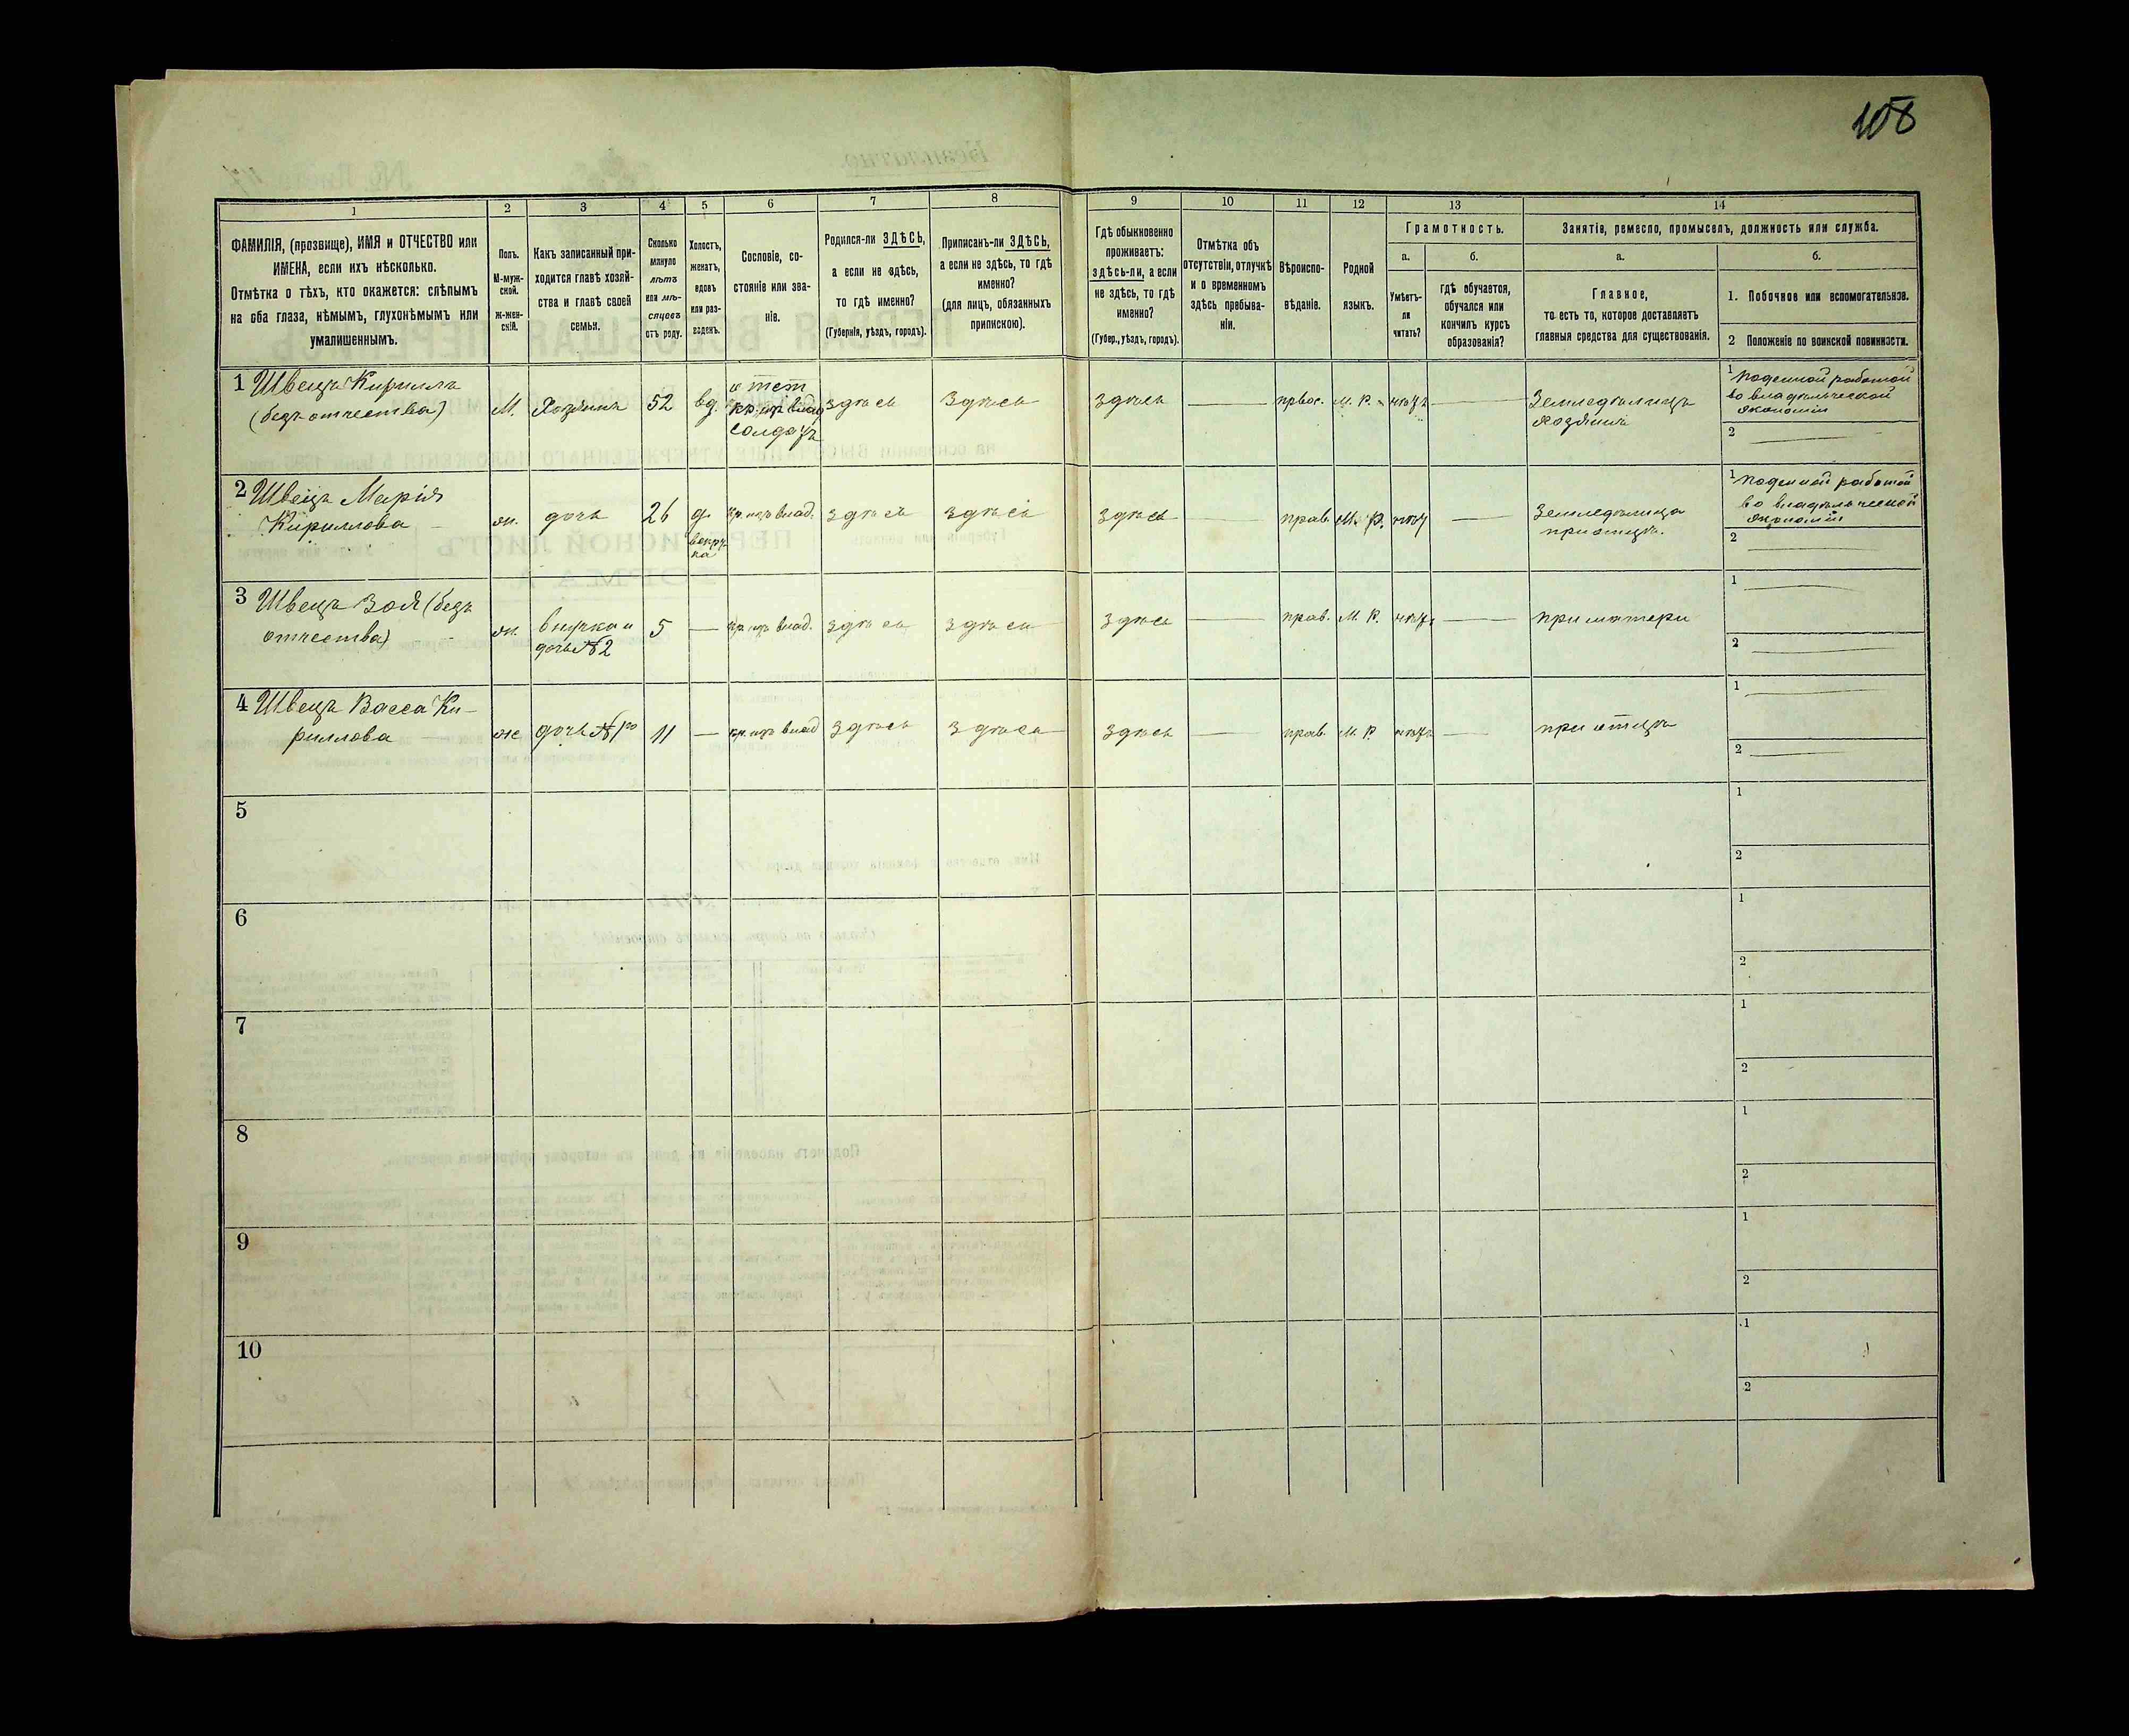 108
1 2 3 4 5 6 7 8 9 10 11 12 13 14
ФАМИЛІЯ, (прозвище), ИМЯ и ОТЧЕСТВО или
ИМЕНА, если ихъ нѣсколько.
Отмѣтка о тѣхъ, кто окажется: слѣпымъ
на оба глаза, нѣмымъ, глухонѣмымъ или
умалишеннымъ.
Полъ.
М-муж-
ской.
ж-жен-
скій.
Какъ записанный при-
ходится главѣ хозяй-
ства и главѣ своей
семьи.
Сколько
минуло
лѣтъ
или мѣ-
сяцевъ
отъ роду.
Холостъ,
женатъ,
вдовъ
или раз-
веденъ.
Сословіе, со-
стояніе или зва-
ніе.
Родился-ли ЗДѢСЬ,
а если не здѣсь,
то гдѣ именно?
(Губернія, уѣздъ, городъ).
Приписанъ-ли ЗДѢСЬ,
а если не здѣсь, то гдѣ
именно?
(для лицъ, обязанныхъ
припискою).
Гдѣ обыкновенно
проживаетъ:
здѣсь-ли, а если
не здѣсь, то гдѣ
именно?
(Губер., уѣздъ, городъ).
Отмѣтка объ
отсутствіи, отлучкѣ
и о временномъ
здѣсь пребыва-
ніи.
Вѣроиспо-
вѣданіе.
Родной
языкъ.
Грамотность.
а.
Умѣетъ-
ли
читать?
б.
гдѣ обучается,
обучался или
кончилъ курсъ
образованія?
Занятіе, ремесло, промыселъ, должность или служба.
а.
Главное,
то есть то, которое доставляетъ
главныя средства для существованія.
б.
1. Побочное или вспомогательное.
2 Положеніе по воинской повинности.
1 Швецъ Кириллъ
(безъ отчества)
М.
Хозяинъ
52
вд.
кр. изъ влад.
солдатъ
здѣсь
здѣсь
здѣсь
—
М. Р.
нѣтъ
—
Земледѣлецъ
хозяинъ
1 поденной работой
во владѣльческой
экономіи
2 —
2 Швецъ Марія
Кириллова
ж.
дочь
26
д.
кр. изъ влад.
здѣсь
здѣсь
здѣсь
—
прав.
М. Р.
нѣт
—
Земледѣлица
при отцѣ.
1 поденной работой
во владѣльческой
экономіи
2 —
3 Швецъ Зоя (безъ
отчества)
ж.
внучка и
дочь № 2
5
—
кр. изъ влад.
здѣсь
здѣсь
здѣсь
—
прав.
М. Р.
нѣтъ
—
при матери
1 —
2 —
4 Швецъ Васса Ки-
риллова
ж
дочь № 1го
11
—
кр. изъ влад
здѣсь
здѣсь
здѣсь
—
прав.
М. Р.
нѣтъ
—
при отцѣ
1 —
2 —
5
1
2
6
1
2
7
1
2
8
1
2
9
1
2
10
1
2